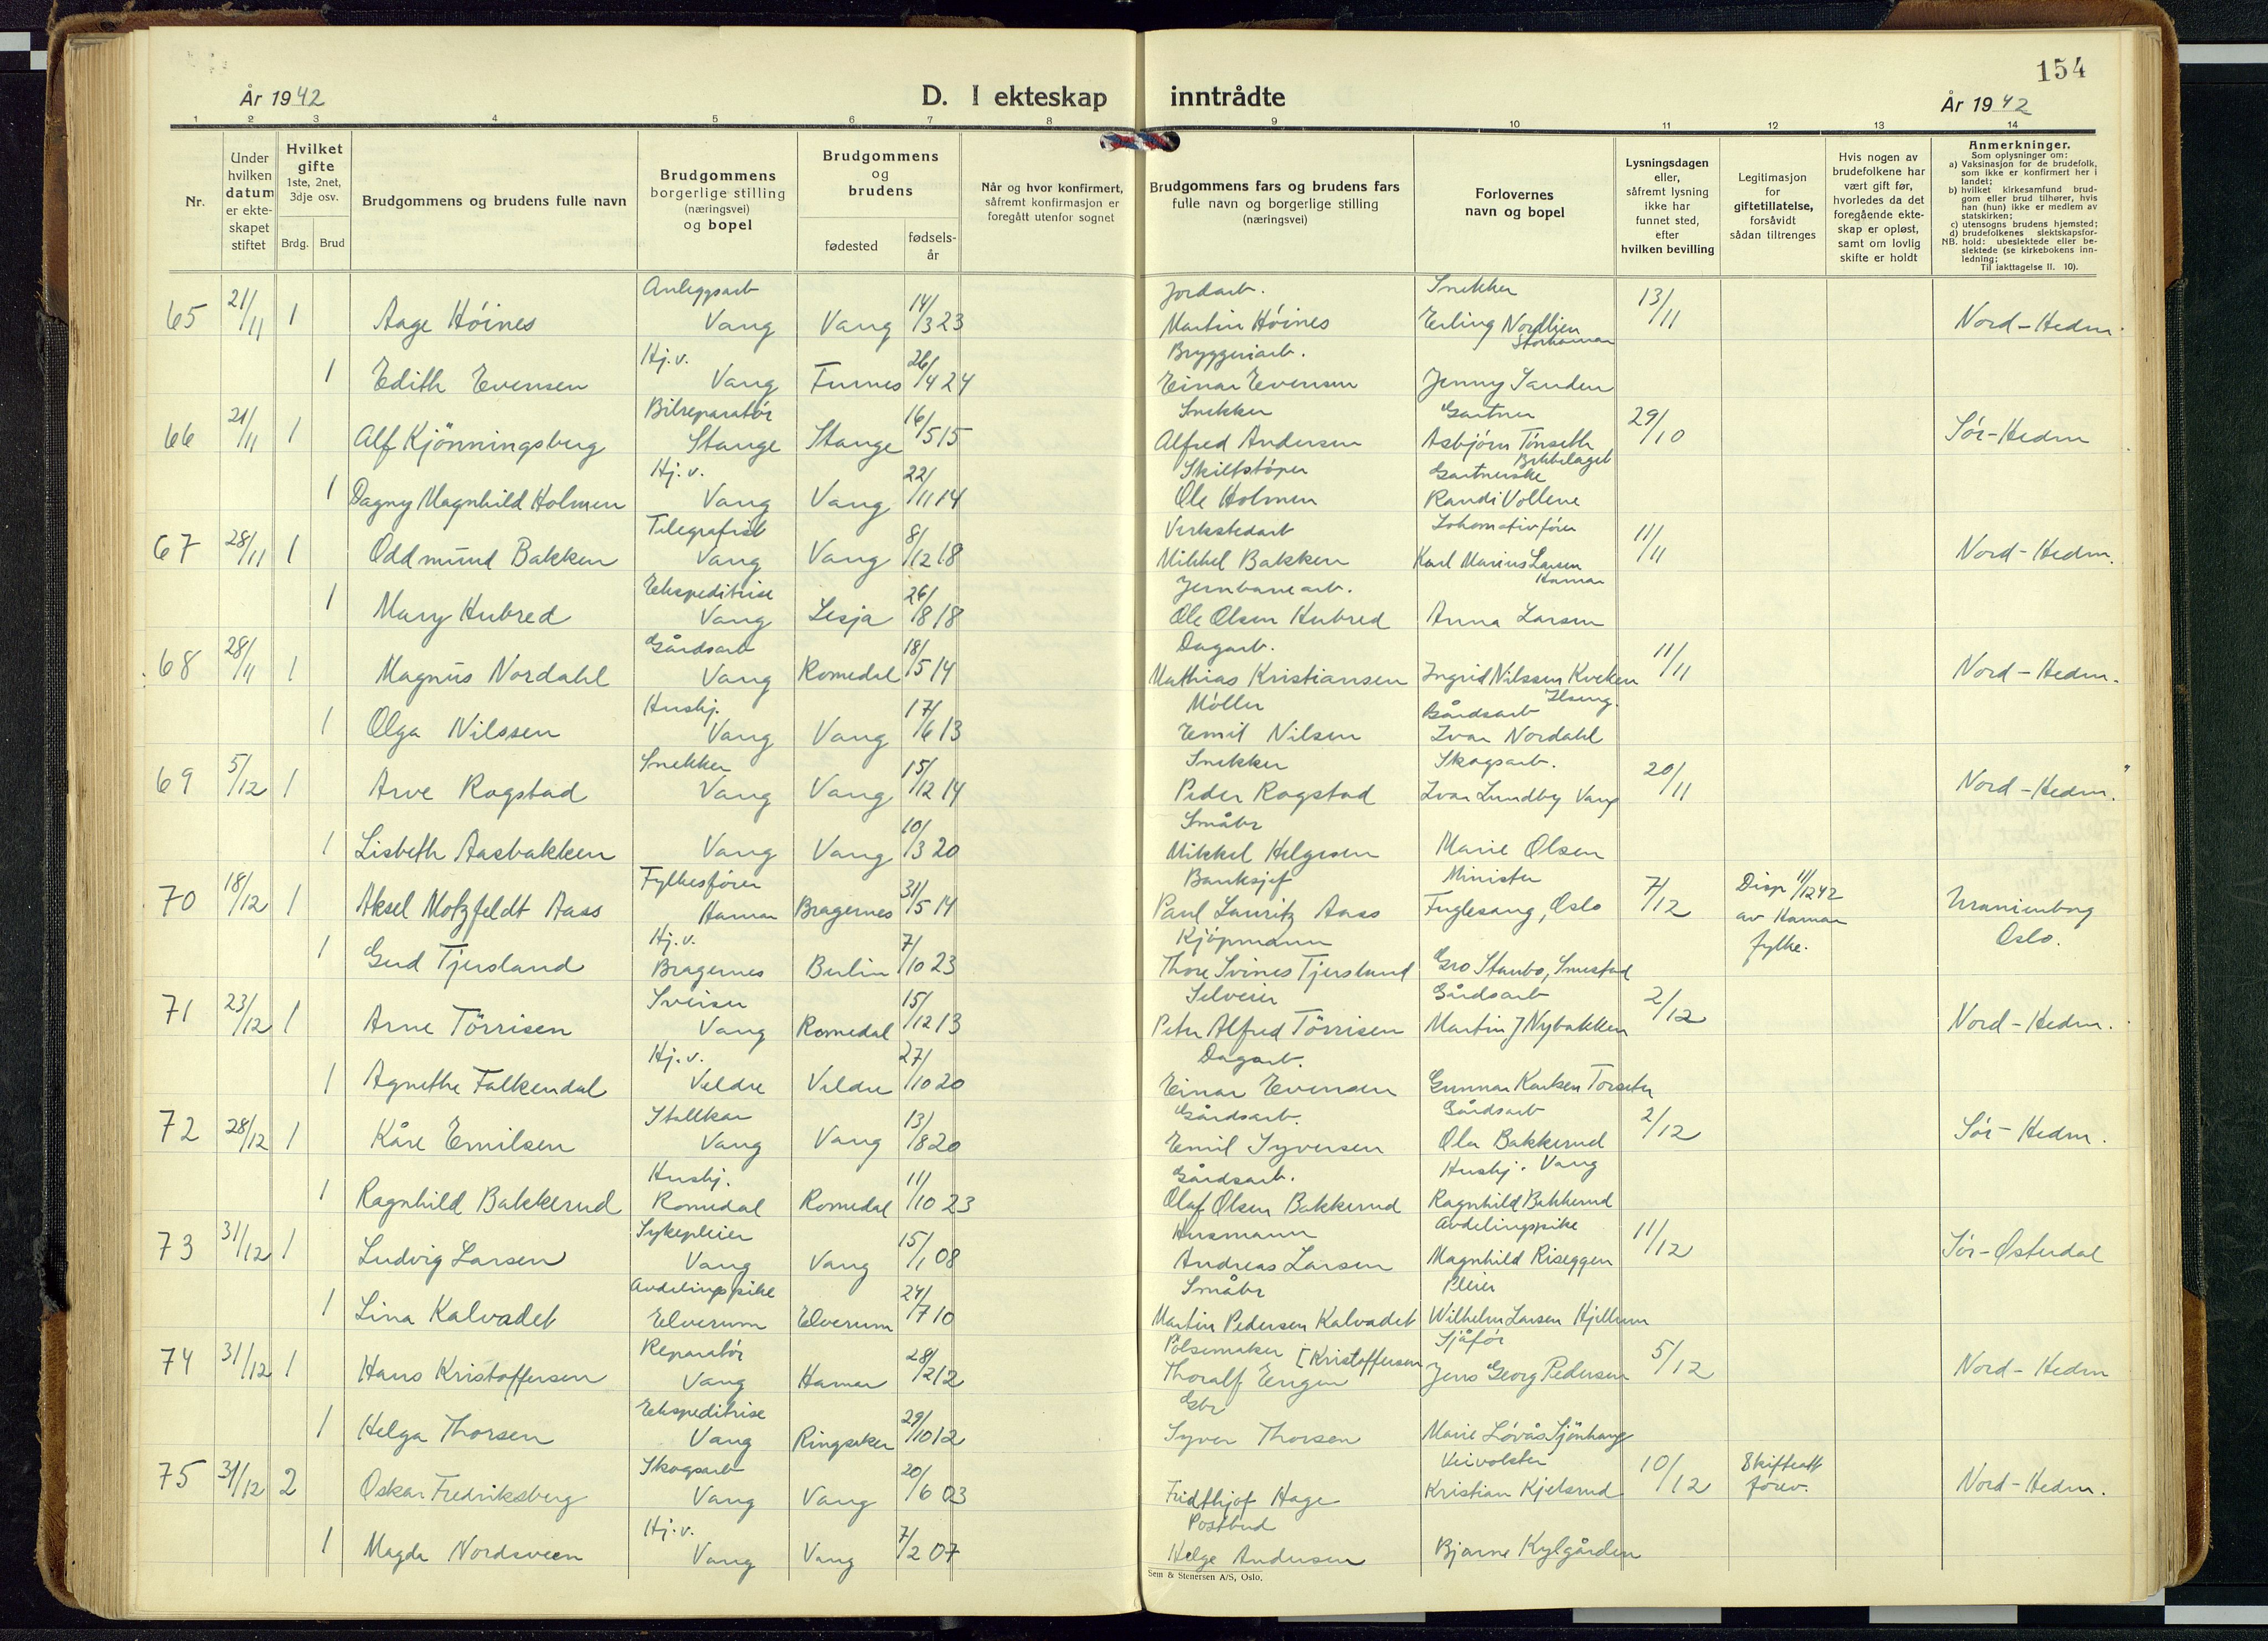 154
År 1942
D. I ekteskap inntrådte
År 1942
1 2 3 4 5 6 7 8 9 10 11 12 13 14
Nr.
Under hvilken datum er ekte-skapet stiftet
Hvilket gifte 1ste, 2net, 3dje osv.
Brdg. Brud
Brudgommens og brudens fulle navn
Brudgommens borgerlige stilling (næringsvei) og bopel
Brudgommens og brudens
fødested
fødsels-år
Når og hvor konfirmert, såfremt konfirmasjon er foregått utenfor sognet
Brudgommens fars og brudens fars fulle navn og borgerlige stilling (næringsvei)
Forlovernes navn og bopel
Lysningsdagen eller, såfremt lysning ikke har funnet sted, efter hvilken bevilling
Legitimasjon for giftetillatelse, forsåvidt sådan tiltrenges
Hvis nogen av brudefolkene har vært gift før, hvorledes da det foregående ekte-skap er opløst, samt om lovlig skifte er holdt
Anmerkninger.
Som oplysninger om:
a) Vaksinasjon for de brudefolk, som ikke er konfirmert her i landet;
b) hvilket kirkesamfund brud-gom eller brud tilhører, hvis han (hun) ikke er medlem av statskirken;
c) utensogns brudens hjemsted;
d) brudefolkenes slektskapsfor-hold: ubeslektede eller be-slektede (se kirkebokens inn-ledning;
NB.
Til iakttagelse II. 10).
Anleggsarb Jordarb. Snekker
65 21/11 1 Aage Höines Vang Vang 14/3 23 Martin Höines Erling Nordlien Storhamar 13/11 Nord-Hedm.
Hj.v. Bryggeriarb.
1 Edith Evensen Vang Furnes 26/4 24 Einar Evensen Jenny Sanden
Bilreparatör Snekker Gartner
66 21/11 1 Alf Kjönningsberg Stange Stange 16/5 15 Alfred Andersen Asbjörn Tönseth 29/10 Sör-Hedm
Hj.v. Gartnerske
1 Dagny Magnhild Holmen Vang Vang 22/11 14 Ole Holmen Randi Vollene
Telegrafist Verkstedarb Lokomotivförer
67 28/11 1 Oddmund Bakken Vang Vang 8/12 18 Mikkel Bakken Karl Marius Larsen Hamar 11/11 Nord-Hedm.
Ekspeditrise Jernbanearb.
1 Mary Hubred Vang Lesja 26/8 18 Ole Olsen Hubred Anna Larsen
Gårdsarb Dagarb.
68 28/11 1 Magnus Nordahl Vang Romedal 18/5 14 Mathias Kristiansen Ingrid Nilssen Kveken Ilseng. 11/11 Nord-Hedm.
Hushj. Möller Gårdsarb
1 Olga Nilssen Vang Vang 17/6 13 Emil Nilsen Ivar Nordahl
Snekker Snekker Skogsarb.
69 5/12 1 Arve Rogstad Vang Vang 15/12 14 Peder Rogstad Ivar Lundby Vang 20/11 Nord-Hedm.
Småbr
1 Lisbeth Aasbakken Vang Vang 10/3 20 Mikkel Helgesen Marie Olsen
Fylkesförer Banksjef Minister
70 18/12 1 Aksel Motzfeldt Aass Hamar Bragernes 31/5 14 Paul Lauritz Aass Fuglesang, Oslo 7/12 Disp 11/12 42 av Hamar fylke. Uranienborg Oslo.
Hj.v. Kjöpmann
1 Gerd Tjersland Bragernes Berlin 7/10 23 Thore Svines Tjersland Gro Staubo, Smestad
Sveiser Selveier Gårdsarb
71 23/12 1 Arne Törrisen Vang Romedal 15/12 13 Peter Alfred Törrisen Martin J Nybakken 2/12 Nord-Hedm.
Hj.v. Dagarb.
1 Agnethe Falkendal Veldre Veldre 27/10 20 Einar Evensen Gunnar Karlsen Torseter
Stallkar Gårdsarb. Gårdsarb
72 28/12 1 Kåre Emilsen Vang Vang 13/8 20 Emil Syversen Ola Bakkerud 2/12 Sör-Hedm.
Hushj. Gårdsarb. Hushj. Vang
1 Ragnhild Bakkerud Romedal Romedal 11/10 23 Olaf Olsen Bakkerud Ragnhild Bakkerud
Sykepleier Husmann Avdelingspike
73 31/12 1 Ludvig Larsen Vang Vang 15/1 08 Andreas Larsen Magnhild Riseggen 11/12 Sör-Østerdal
Avdelingspike Småbr Pleier
1 Lina Kalvadet Elverum Elverum 24/7 10 Martin Pedersen Kalvadet Wilhelm Larsen Hjellum
Reparatör Pölsemaker [Kristoffersen Sjåför
74 31/12 1 Hans Kristoffersen Vang Hamar 28/2 12 Thoralf Engen Jens Georg Pedersen 5/12 Nord-Hedm
Ekspeditrise Gbr
1 Helga Thorsen Vang Ringsaker 29/10 12 Syver Thorsen Marie Lövås
Skogsarb Veivokter
75 31/12 2 Oskar Fredriksberg Vang Vang 20/6 03 Fridthjof Hage Kristian Kjelsrud 10/12 Skifteatt förev. Nord-Hedm.
Hj.v. Postbud
1 Magda Nordsveen Vang Vang 7/2 07 Helge Andersen Bjarne Kylgården
Sem & Stenersen A/S, Oslo.